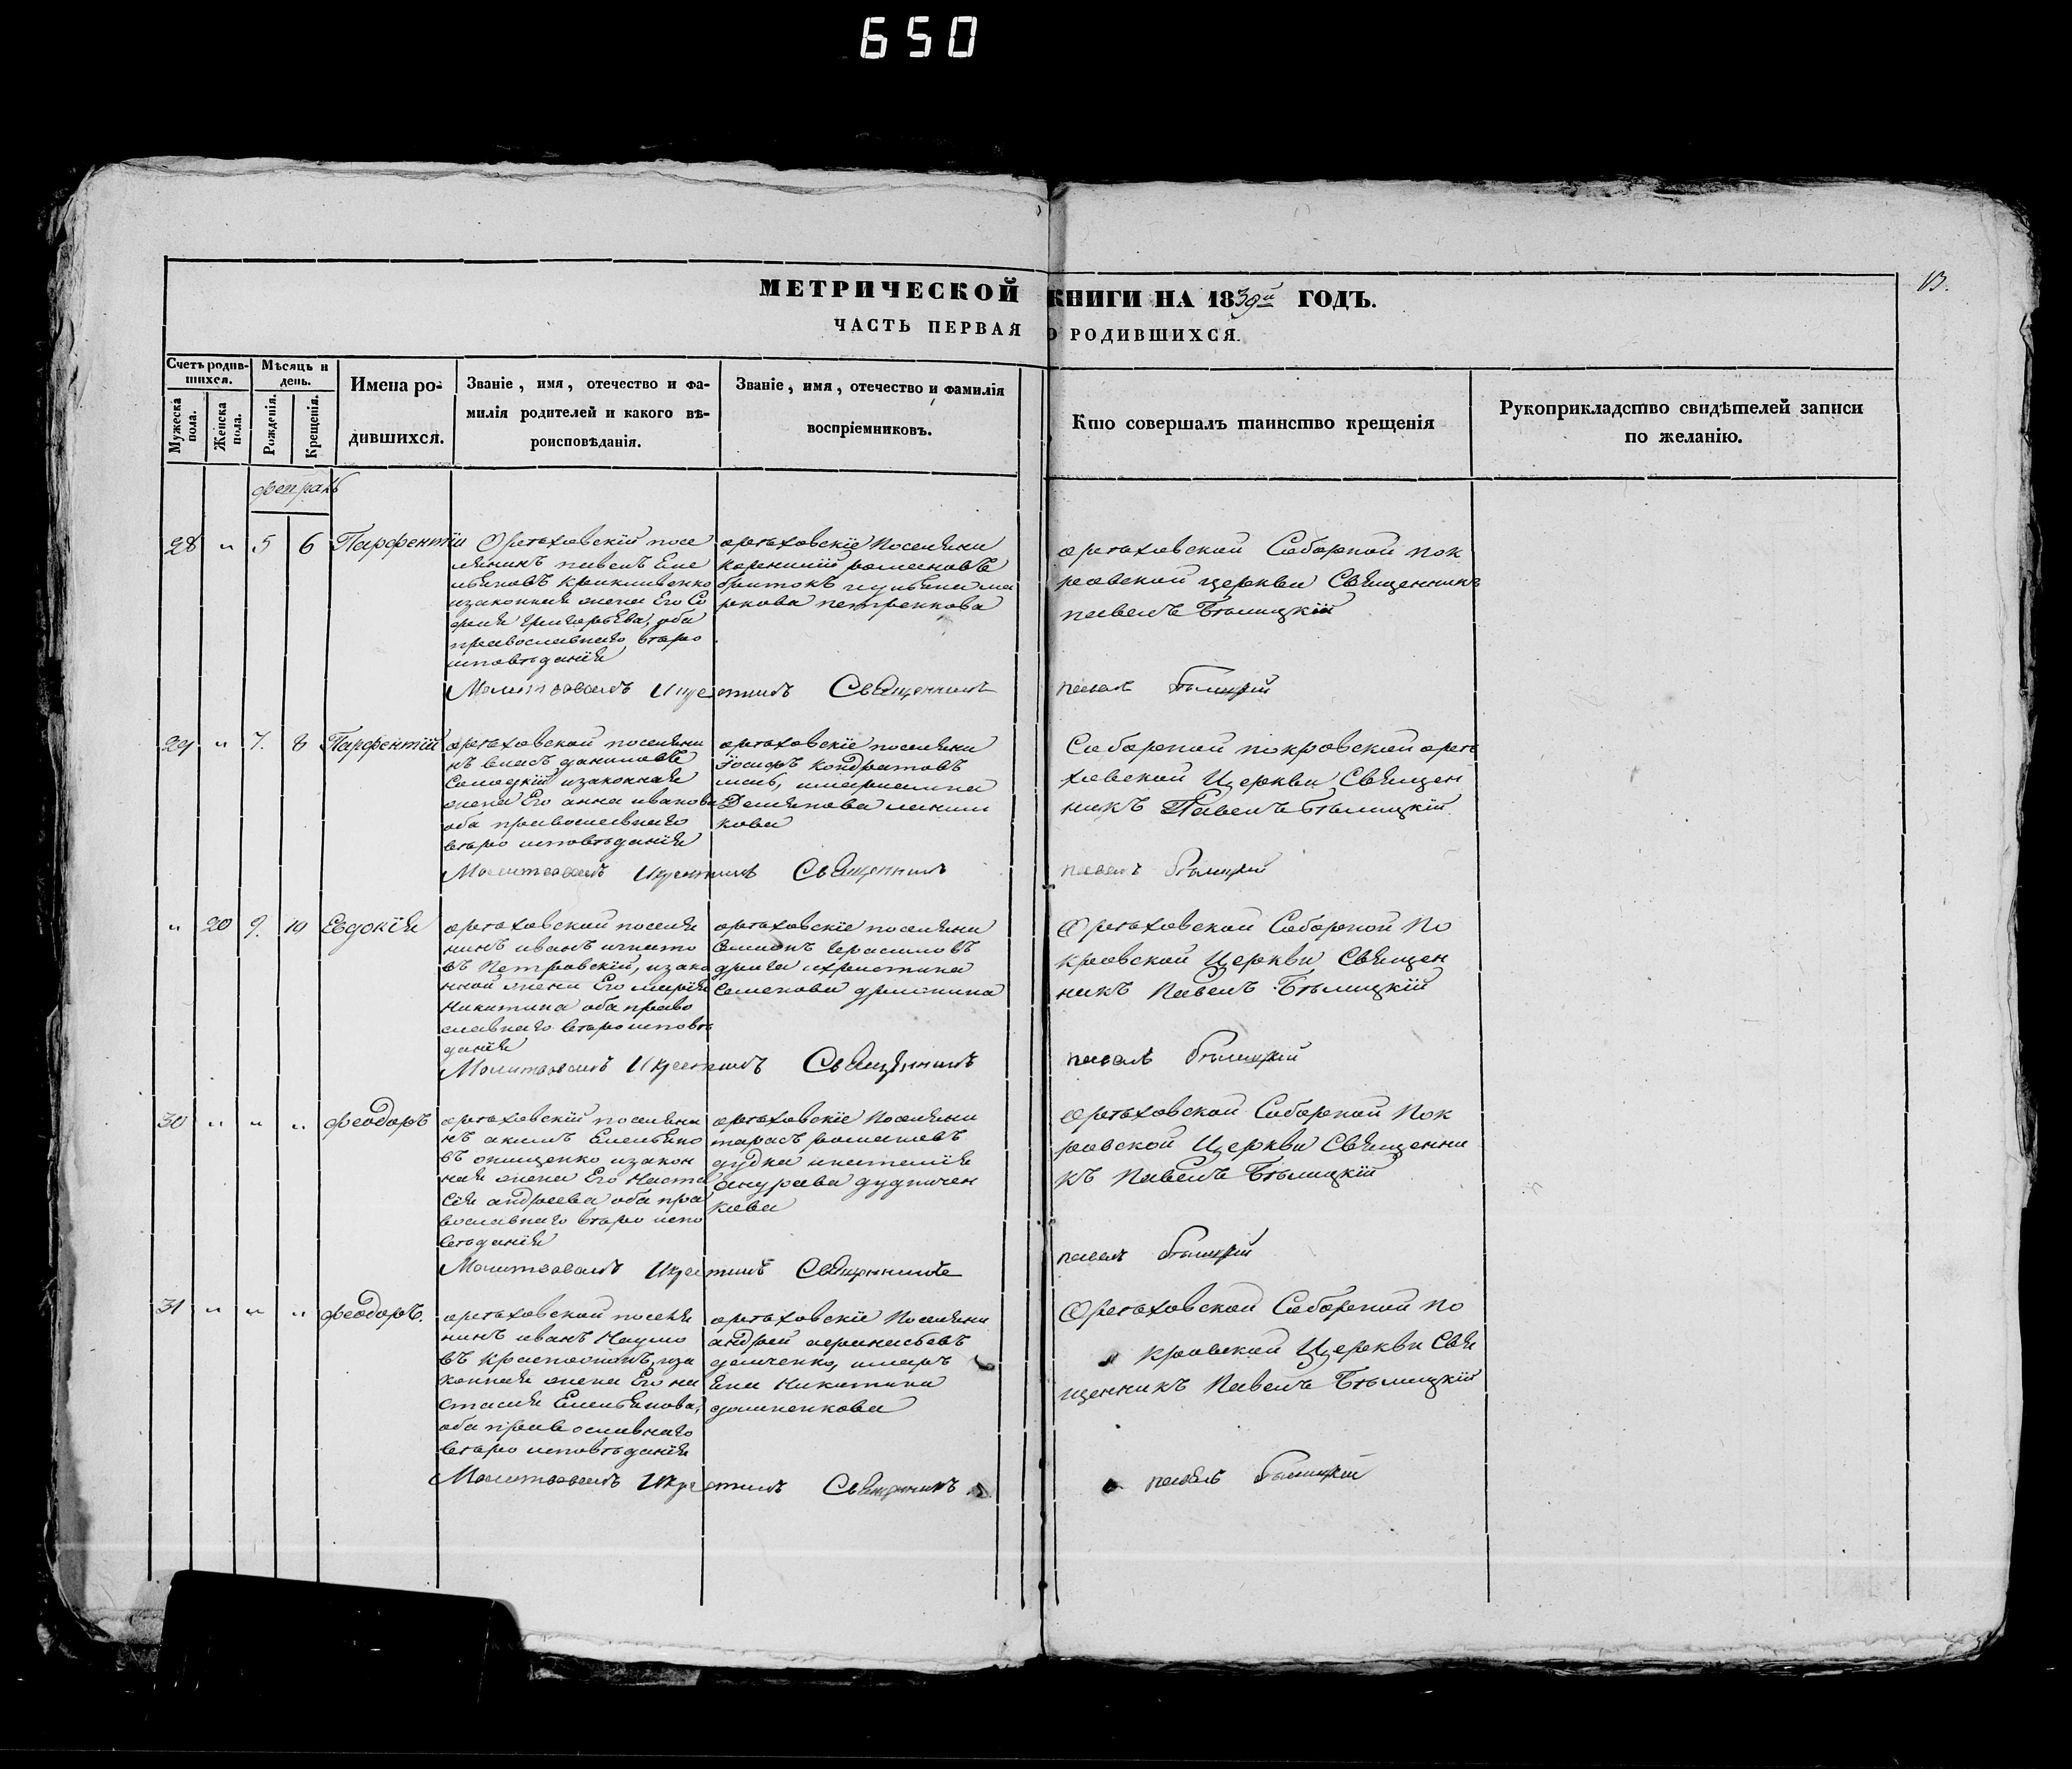 650
13.
МЕТРИЧЕСКОЙ КНИГИ НА 1839й ГОДЪ.
ЧАСТЬ ПЕРВАЯ О РОДИВШИХСЯ.
Счетъ родив-
шихся.
Мужеска
пола.
Женска
пола.
Мѣсяцъ и
день.
Рожденія.
Крещенія.
Имена ро-
дившихся.
Званіе, имя, отечество и фа-
милія родителей и какого вѣ-
роисповѣданія.
Званіе, имя, отечество и фамилія
воспріемниковъ.
Кто совершалъ таинство крещенія
Рукоприкладство свидѣтелей записи
по желанію.
28 " 5 6 Парфентій
Орѣховскій посе
лянинъ павелъ Еме
льяновъ
изаконная жена Его Со
фия григорьева, оба
православнаго вѣро
исповѣданія
орѣховскіе Поселяни
романовъ
бритокъ
ркова петренкова
орѣховской Соборной пок
ровской церкви Священникъ
павелъ Бѣлицкій
Молитвовалъ Икрестилъ Священникъ павелъ Бѣлицкій
29 " 7. 8 Парфентій
орѣховской поселяни
нъ власъ даниловъ
изаконная
жена Его анна иванова
оба православнаго
вѣро исповѣданія
орѣховскіе поселяни
Іосифъ кондратовъ
Демянова
кова
Соборной покровской орѣ
ховской Церкви Священ
никъ Павелъ Бѣлицкій
Молитвовалъ Икрестилъ Священникъ павелъ Бѣлицкій
" 20 9. 10 Евдокія
орѣховской поселя
нинъ иванъ игнато
въ Петровскій, изако
нной жены Его марія
Никитина оба право
славнаго вѣроисповѣ
данія
орѣховскіе поселяни
Герасимовъ
ихристина
Семенова
Орѣховской Соборной По
кровской Церкви Священ
никъ Павелъ Бѣлицкій
Молитвовалъ Икрестилъ Священникъ павелъ Бѣлицкій
30 " " " Феодоръ
орѣховскій поселяни
нъ акимъ Емельяно
въ онищенко изакон
ная жена Его Наста
сія андреева оба пра
вославнаго вѣро испо
вѣданія
орѣховскіе Поселяни
тарасъ романовъ
дудка
кова
Орѣховской Соборной Пок
ровской Церкви Священни
къ Павелъ Бѣлицкій
Молитвовалъ Икрестилъ Священникъ павелъ Бѣлицкій
31 " " " Феодоръ.
орѣховской поселя
нинъ иванъ Наумо
въ иза
конная жена Его на
стасия Емельянова,
оба православнаго
вѣро исповѣданія
орѣховскіе Поселяни
андрей афанасьевъ
демченко, имарь
яна Никитина
Орѣховской Соборной По
кровской Церкви Свя
щенникъ Павелъ Бѣлицкій
Молитвовалъ Икрестилъ Священникъ павелъ Бѣлицкій